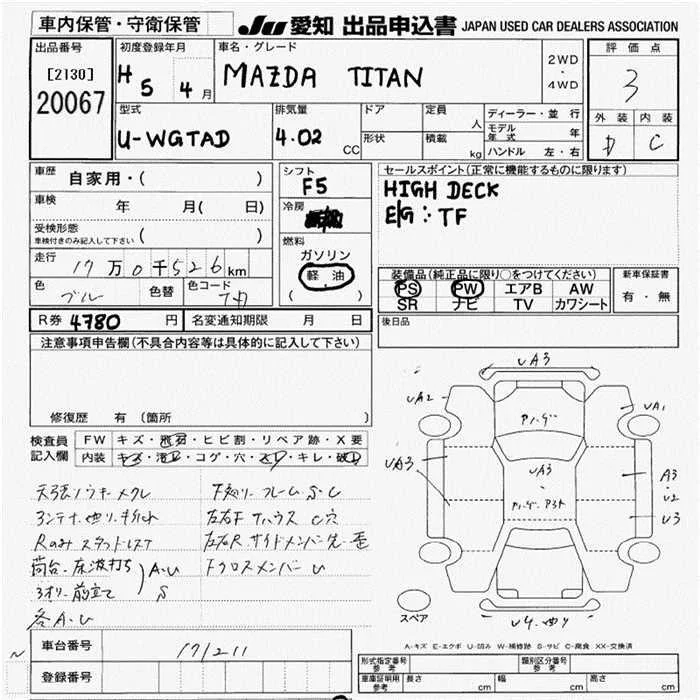 車内保管・守衛保管
JU 愛知 出品申込書 JAPAN USED CAR DEALERS ASSOCIATION
出品番号
[2130]
20067
初度登録年月
H 5 4 月
車名・グレード
MAZDA TITAN
2WD
・
4WD
評価点
3
外装 内装
D C
型式
U-WGTAD
排気量
4.02 CC
ドア
形状
定員 人
積載 kg
ディーラー・並行
モデル年式 年
ハンドル 左・右
車歴 自家用・( )
車検 年 月( 日)
受検形態
車検付きのみ記入して下さい ( )
走行 17万0千526km
色 ブル 色替 色コード
シフト
F5
冷房
燃料
ガソリン
軽油
( )
セールスポイント(正常に機能するものに限ります)
HIGH DECK
E/G: TF
装備品(純正品に限り○をつけてください)
PS PW エアB AW
SR ナビ TV カワシート
新車保証書
有・無
後日品
R券 4780 円 名変通知期限 月 日
注意事項申告欄(不具合内容等は具体的に記入して下さい)
修復歴 有(箇所 )
検査員記入欄
FW キズ・飛石・ヒビ割・リペア跡・X要
内装 キズ・汚れ・コゲ・穴・スレ・キレ・破れ
Rのみスタッドレスタ
荷台・床波打ち A.U
3オリ.前立て S
各A.U
下廻り フレーム S.C
左右R.サイドメンバー先.歪
Fクロスメンバー U
UA3
UA2
UA1
UA3
UA3
A3
U2
U3
U4.
スペア
A-キズ E-エクボ U-凹み W-補修跡 S-サビ C-腐食 XX-交換済
車台番号 171211
登録番号
型式指定番号 参考
類別区分番号 参考
車庫証明用 参考 長さ cm 幅 cm 高さ cm